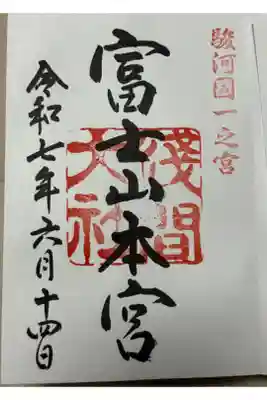 駿河国一之宮
富士山本宮
浅間大社
令和七年六月十四日